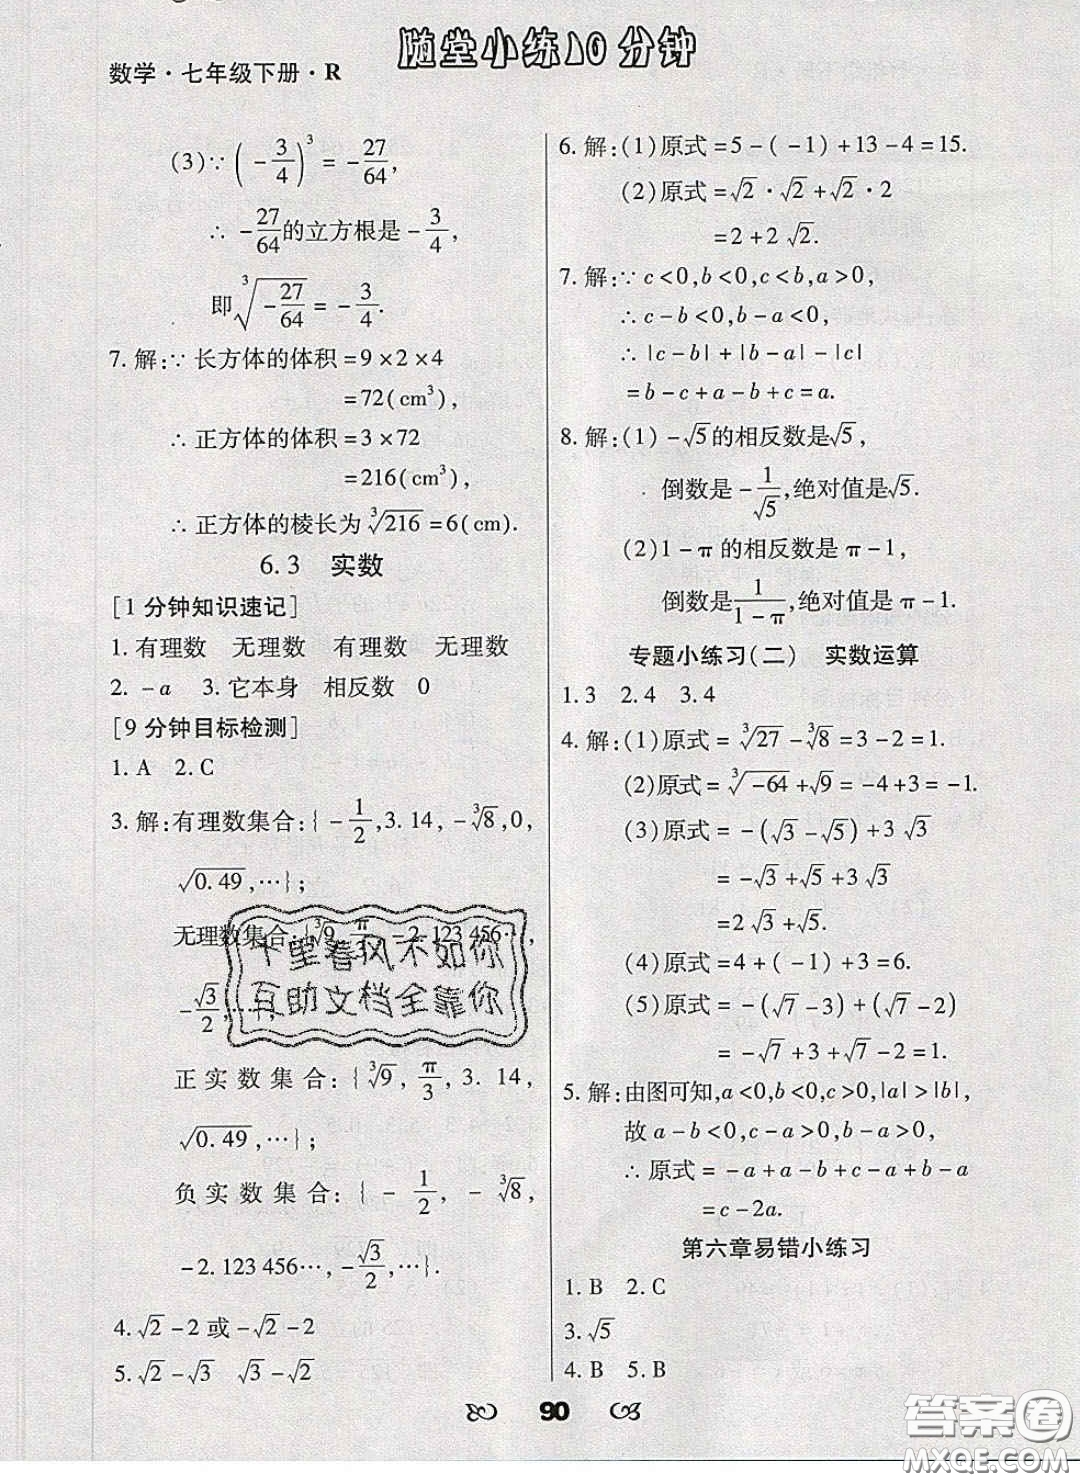 随堂小练10分钟
数学·七年级下册·R
(3)∵(-3/4)³=-27/64,
∴-27/64的立方根是-3/4,
即∛(-27/64)=-3/4.
7. 解:∵长方体的体积=9×2×4
=72(cm³),
∴正方体的体积=3×72
=216(cm³),
∴正方体的棱长为∛216=6(cm).
6.3 实数
[1分钟知识速记]
1. 有理数 无理数 有理数 无理数
2. -a 3. 它本身 相反数 0
[9分钟目标检测]
1. A 2. C
3. 解:有理数集合:{-1/2,3.14,-∛8,0,
√0.49,…};
无理数集合:{∛9,π/3,-2.123 456…,
-√3/2,…};
正实数集合:{∛9,π/3,3.14,
√0.49,…};
负实数集合:{-1/2,-∛8,
-2.123 456…,-√3/2,…}.
4. √2-2或-√2-2
5. √2-√3 √3-√2
6. 解:(1)原式=5-(-1)+13-4=15.
(2)原式=√2·√2+√2·2
=2+2√2.
7. 解:∵c<0,b<0,c<b,a>0,
∴c-b<0,b-a<0,
∴|c-b|+|b-a|-|c|
=b-c+a-b+c=a.
8. 解:(1)-√5的相反数是√5,
倒数是-1/√5,绝对值是√5.
(2)1-π的相反数是π-1,
倒数是1/(1-π),绝对值是π-1.
专题小练习(二) 实数运算
1. 3 2. 4 3. 4
4. 解:(1)原式=∛27-∛8=3-2=1.
(2)原式=∛-64+√9=-4+3=-1.
(3)原式=-(√3-√5)+3√3
=-√3+√5+3√3
=2√3+√5.
(4)原式=4+(-1)+3=6.
(5)原式=-(√7-3)+(√7-2)
=-√7+3+√7-2=1.
5. 解:由图可知,a<0,b<0,c>0,|a|>|b|,
故a-b<0,c-a>0,b<0,
∴原式=-a+a-b+c-a+b-a
=c-2a.
第六章易错小练习
1. B 2. C
3. √5
4. B 5. B
90
下望春风不如你
互助文档全靠你
答案圈
MXQE.COM